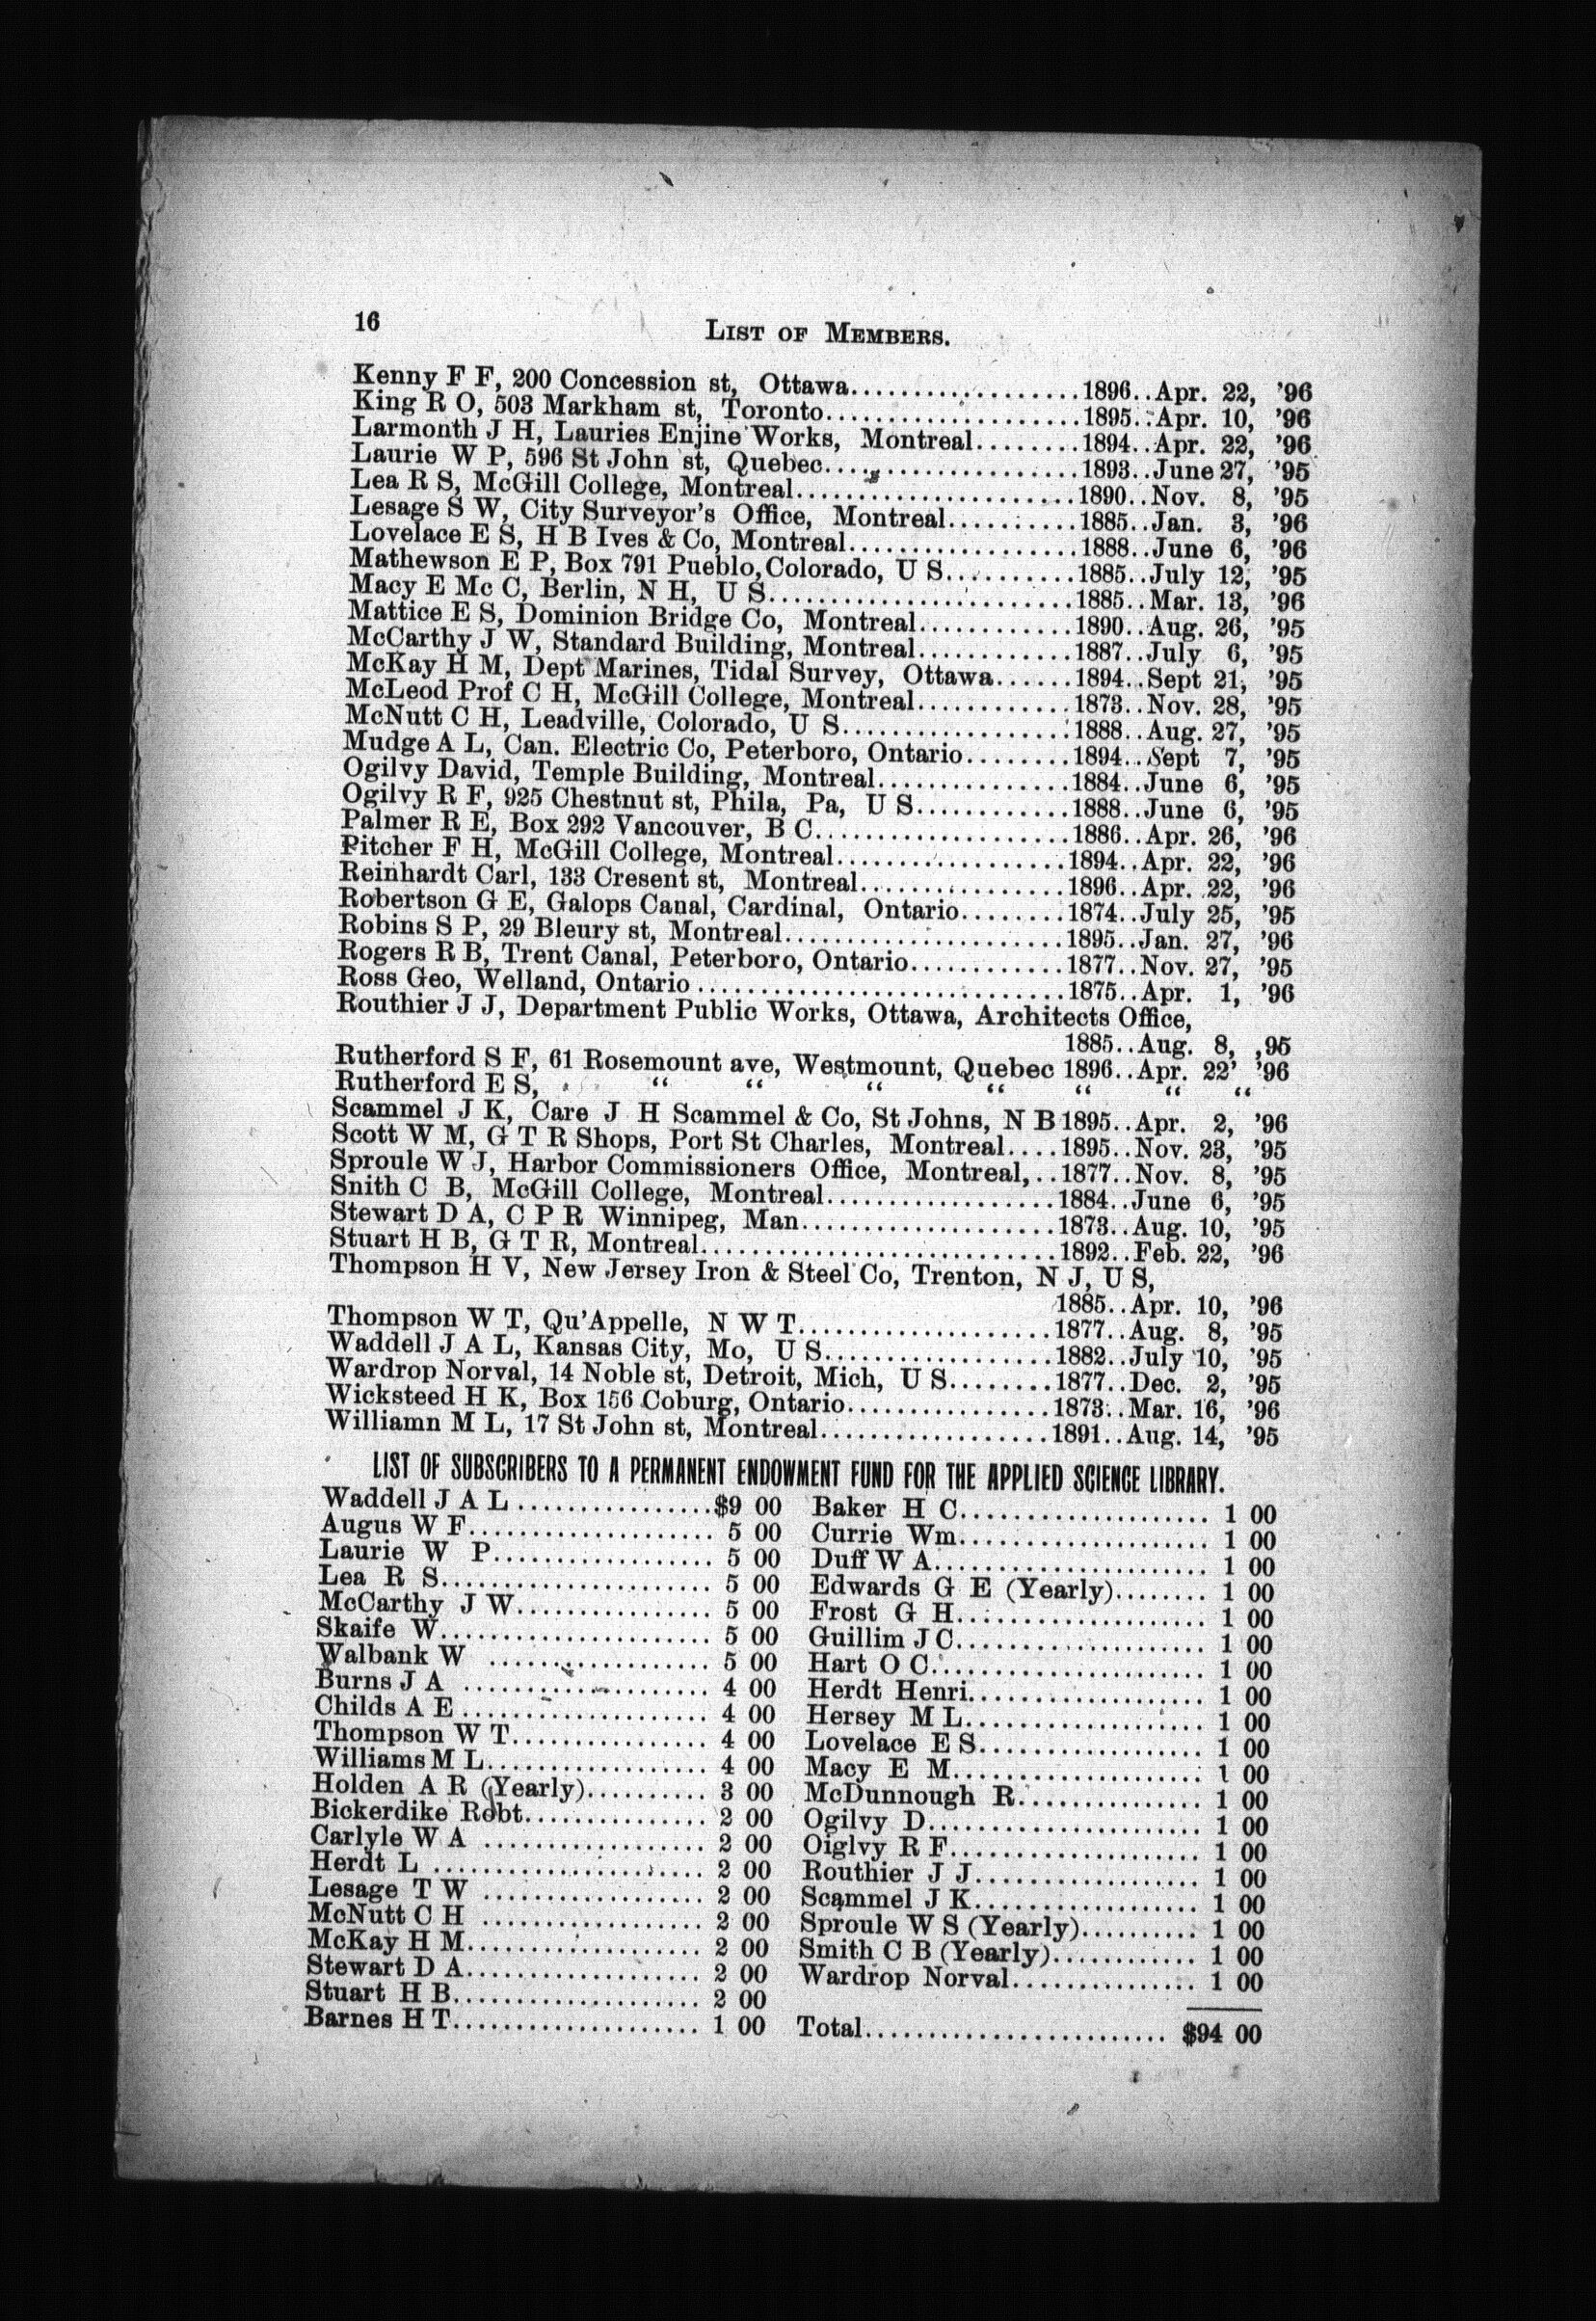 16
LIST OF MEMBERS.
Kenny F F, 200 Concession st, Ottawa..................1896..Apr. 22, '96
King R O, 503 Markham st, Toronto....................1895..Apr. 10, '96
Larmonth J H, Lauries Enjine Works, Montreal........1894..Apr. 22, '96
Laurie W P, 596 St John st, Quebec....................1893..June 27, '95
Lea R S, McGill College, Montreal......................1890..Nov. 8, '95
Lesage S W, City Surveyor's Office, Montreal..........1885..Jan. 3, '96
Lovelace E S, H B Ives & Co, Montreal..................1888..June 6, '96
Mathewson E P, Box 791 Pueblo, Colorado, U S..........1885..July 12, '95
Macy E Mc C, Berlin, N H, U S........................1885..Mar. 13, '96
Mattice E S, Dominion Bridge Co, Montreal............1890..Aug. 26, '95
McCarthy J W, Standard Building, Montreal............1887..July 6, '95
McKay H M, Dept Marines, Tidal Survey, Ottawa......1894..Sept 21, '95
McLeod Prof C H, McGill College, Montreal............1873..Nov. 28, '95
McNutt C H, Leadville, Colorado, U S..................1888..Aug. 27, '95
Mudge A L, Can. Electric Co, Peterboro, Ontario........1894..Sept 7, '95
Ogilvy David, Temple Building, Montreal...............1884..June 6, '95
Ogilvy R F, 925 Chestnut st, Phila, Pa, U S............1888..June 6, '95
Palmer R E, Box 292 Vancouver, B C....................1886..Apr. 26, '96
Pitcher F H, McGill College, Montreal..................1894..Apr. 22, '96
Reinhardt Carl, 133 Cresent st, Montreal................1896..Apr. 22, '96
Robertson G E, Galops Canal, Cardinal, Ontario........1874..July 25, '95
Robins S P, 29 Bleury st, Montreal......................1895..Jan. 27, '96
Rogers R B, Trent Canal, Peterboro, Ontario............1877..Nov. 27, '95
Ross Geo, Welland, Ontario .............................1875..Apr. 1, '96
Routhier J J, Department Public Works, Ottawa, Architects Office,
1885..Aug. 8, ,95
Rutherford S F, 61 Rosemount ave, Westmount, Quebec 1896..Apr. 22' '96
Rutherford E S, “ “ “ “ “ “ “
Scammel J K, Care J H Scammel & Co, St Johns, N B 1895..Apr. 2, '96
Scott W M, G T R Shops, Port St Charles, Montreal....1895..Nov. 23, '95
Sproule W J, Harbor Commissioners Office, Montreal,..1877..Nov. 8, '95
Snith C B, McGill College, Montreal..................1884..June 6, '95
Stewart D A, C P R Winnipeg, Man....................1873..Aug. 10, '95
Stuart H B, G T R, Montreal............................1892..Feb. 22, '96
Thompson H V, New Jersey Iron & Steel Co, Trenton, N J, U S,
1885..Apr. 10, '96
Thompson W T, Qu'Appelle, N W T....................1877..Aug. 8, '95
Waddell J A L, Kansas City, Mo, U S..................1882..July 10, '95
Wardrop Norval, 14 Noble st, Detroit, Mich, U S........1877..Dec. 2, '95
Wicksteed H K, Box 156 Coburg, Ontario................1873..Mar. 16, '96
Williamn M L, 17 St John st, Montreal..................1891..Aug. 14, '95
LIST OF SUBSCRIBERS TO A PERMANENT ENDOWMENT FUND FOR THE APPLIED SCIENCE LIBRARY.
Waddell J A L................$9 00
Augus W F.................... 5 00
Laurie W P.................. 5 00
Lea R S...................... 5 00
McCarthy J W................ 5 00
Skaife W...................... 5 00
Walbank W .................. 5 00
Burns J A .................... 4 00
Childs A E .................... 4 00
Thompson W T................ 4 00
Williams M L.................. 4 00
Holden A R (Yearly).......... 3 00
Bickerdike Robt............... 2 00
Carlyle W A .................. 2 00
Herdt L ...................... 2 00
Lesage T W .................. 2 00
McNutt C H .................. 2 00
McKay H M................... 2 00
Stewart D A................... 2 00
Stuart H B.................... 2 00
Barnes H T.................... 1 00
Baker H C.................... 1 00
Currie Wm.................... 1 00
Duff W A...................... 1 00
Edwards G E (Yearly)........ 1 00
Frost G H.................... 1 00
Guillim J C.................... 1 00
Hart O C...................... 1 00
Herdt Henri................... 1 00
Hersey M L................... 1 00
Lovelace E S.................. 1 00
Macy E M.................... 1 00
McDunnough R............... 1 00
Ogilvy D...................... 1 00
Oiglvy R F.................... 1 00
Routhier J J.................. 1 00
Scammel J K.................. 1 00
Sproule W S (Yearly).......... 1 00
Smith C B (Yearly)............ 1 00
Wardrop Norval............... 1 00
Total........................ $94 00